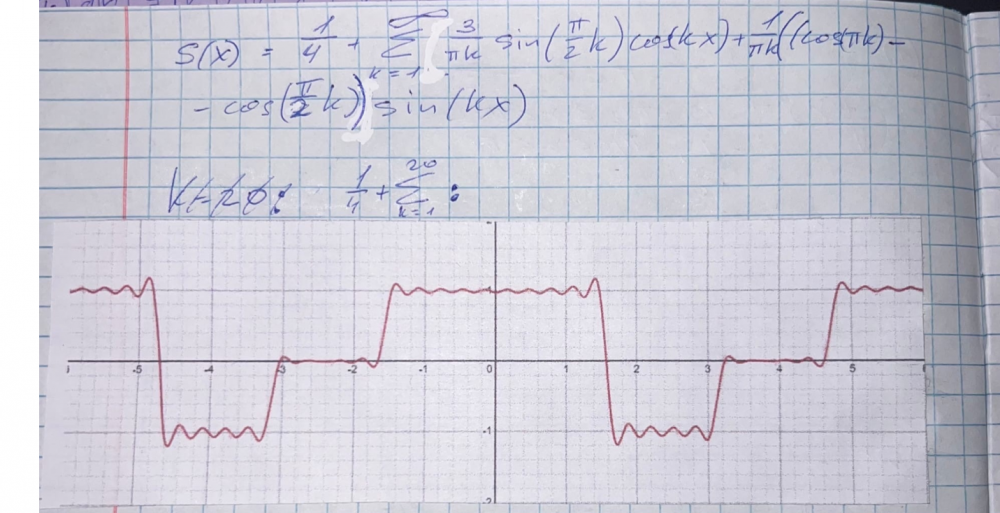 S(x) = 1/4 + ∑_{k=1}^{∞} [3/(πk) sin(π/2 k) cos(kx) + 1/(πk) ((cos(πk) –
– cos(π/2 k))] sin(kx)
1/4 + ∑_{k=1}^{20} :
-5 -4 -3 -2 -1 0 1 2 3 4 5
1
-1
-2